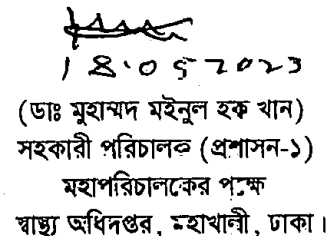 18.05.2023
(ডাঃ মুহাম্মদ মইনুল হক খান)
সহকারী পরিচালক (প্রশাসন-১)
মহাপরিচালকের পক্ষে
স্বাস্থ্য অধিদপ্তর, মহাখালী, ঢাকা।